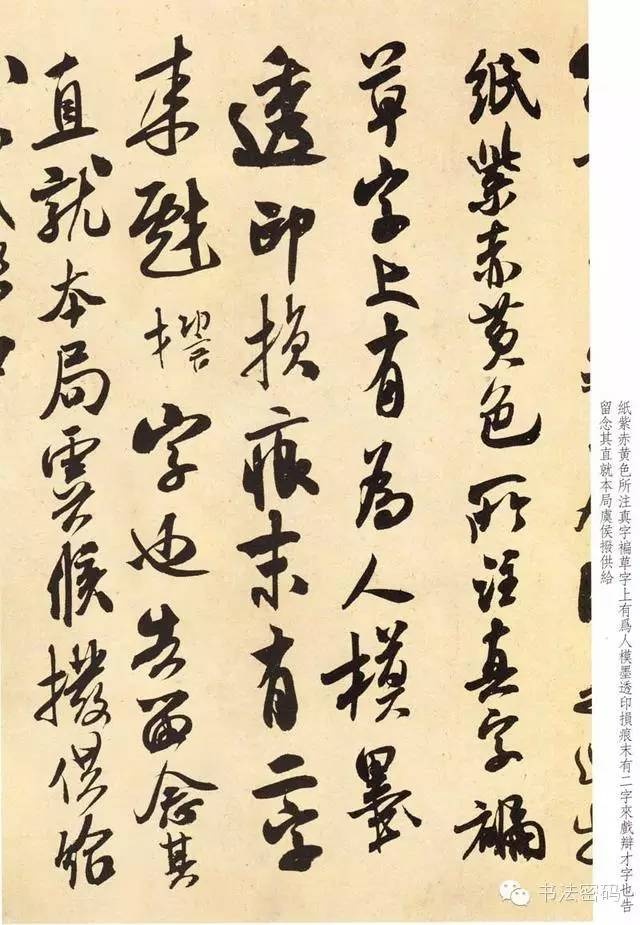 紙紫赤黄色所注真字褊
草字上有為人模墨
透印損痕末有二字
来字也告留念其
直就本局虞候撥供給
紙紫赤黄色所注真字褊草字上有爲人模墨透印損痕末有二字來戲辯才字也告
留念其直就本局虞侯撥供給
书法密码